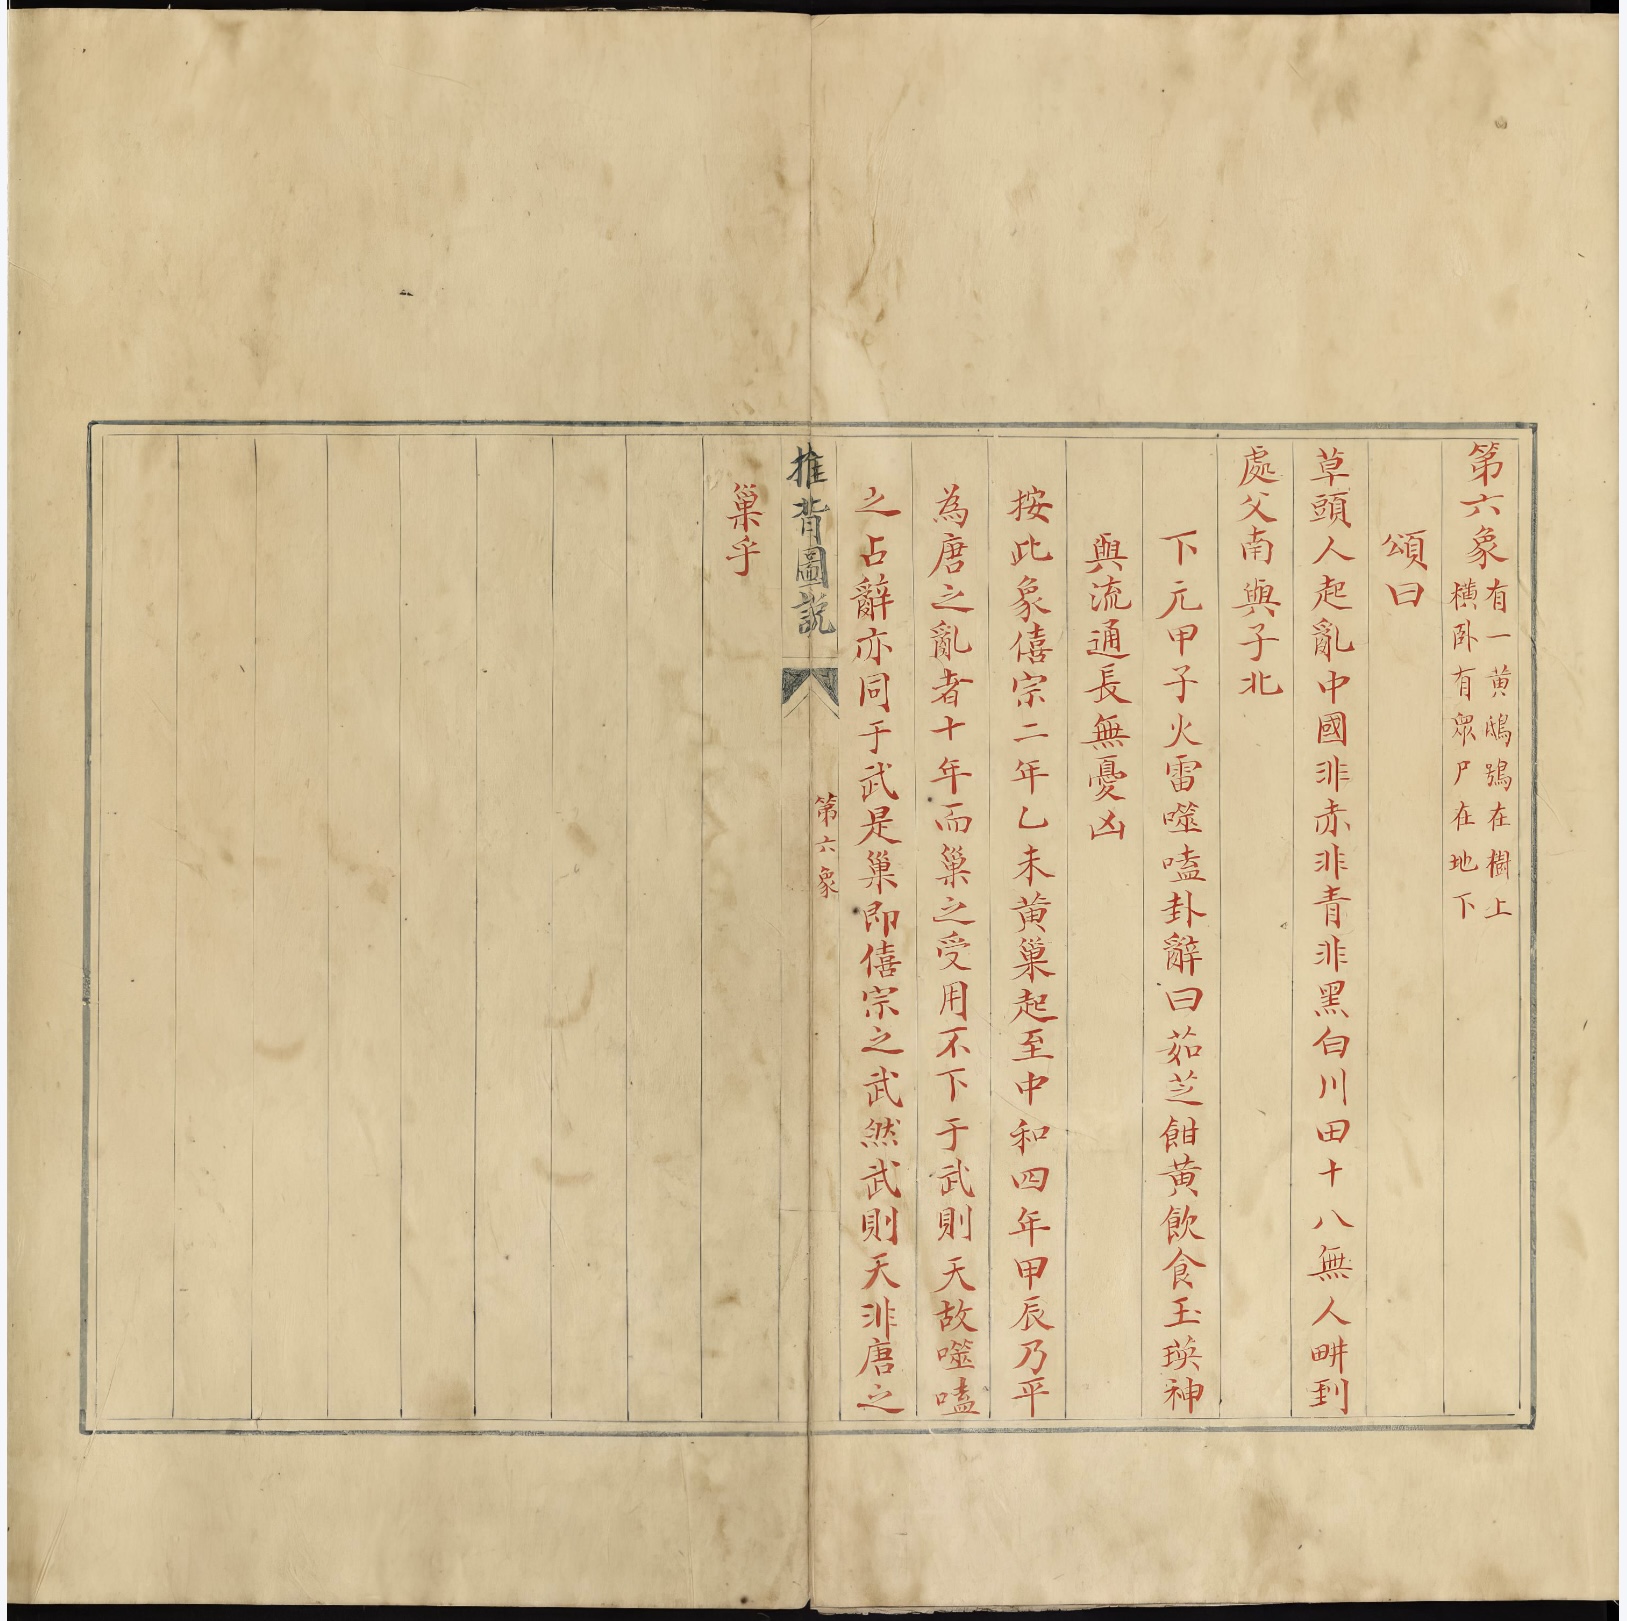 第六象
有一黄鴟鴞在樹上
橫卧有眾尸在地下
頌曰
草頭人起亂中國非赤非青非黑白川田十八無人畊到
處父南與子北
下元甲子火雷噬嗑卦辭曰茹芝餌黄飲食玉瑛神
與流通長無憂凶
按此象僖宗二年乙未黄巢起至中和四年甲辰乃平
為唐之亂者十年而巢之受用不下于武則天故噬嗑
之占辭亦同于武是巢即僖宗之武然武則天非唐之
推背圖説
第六象
巢乎